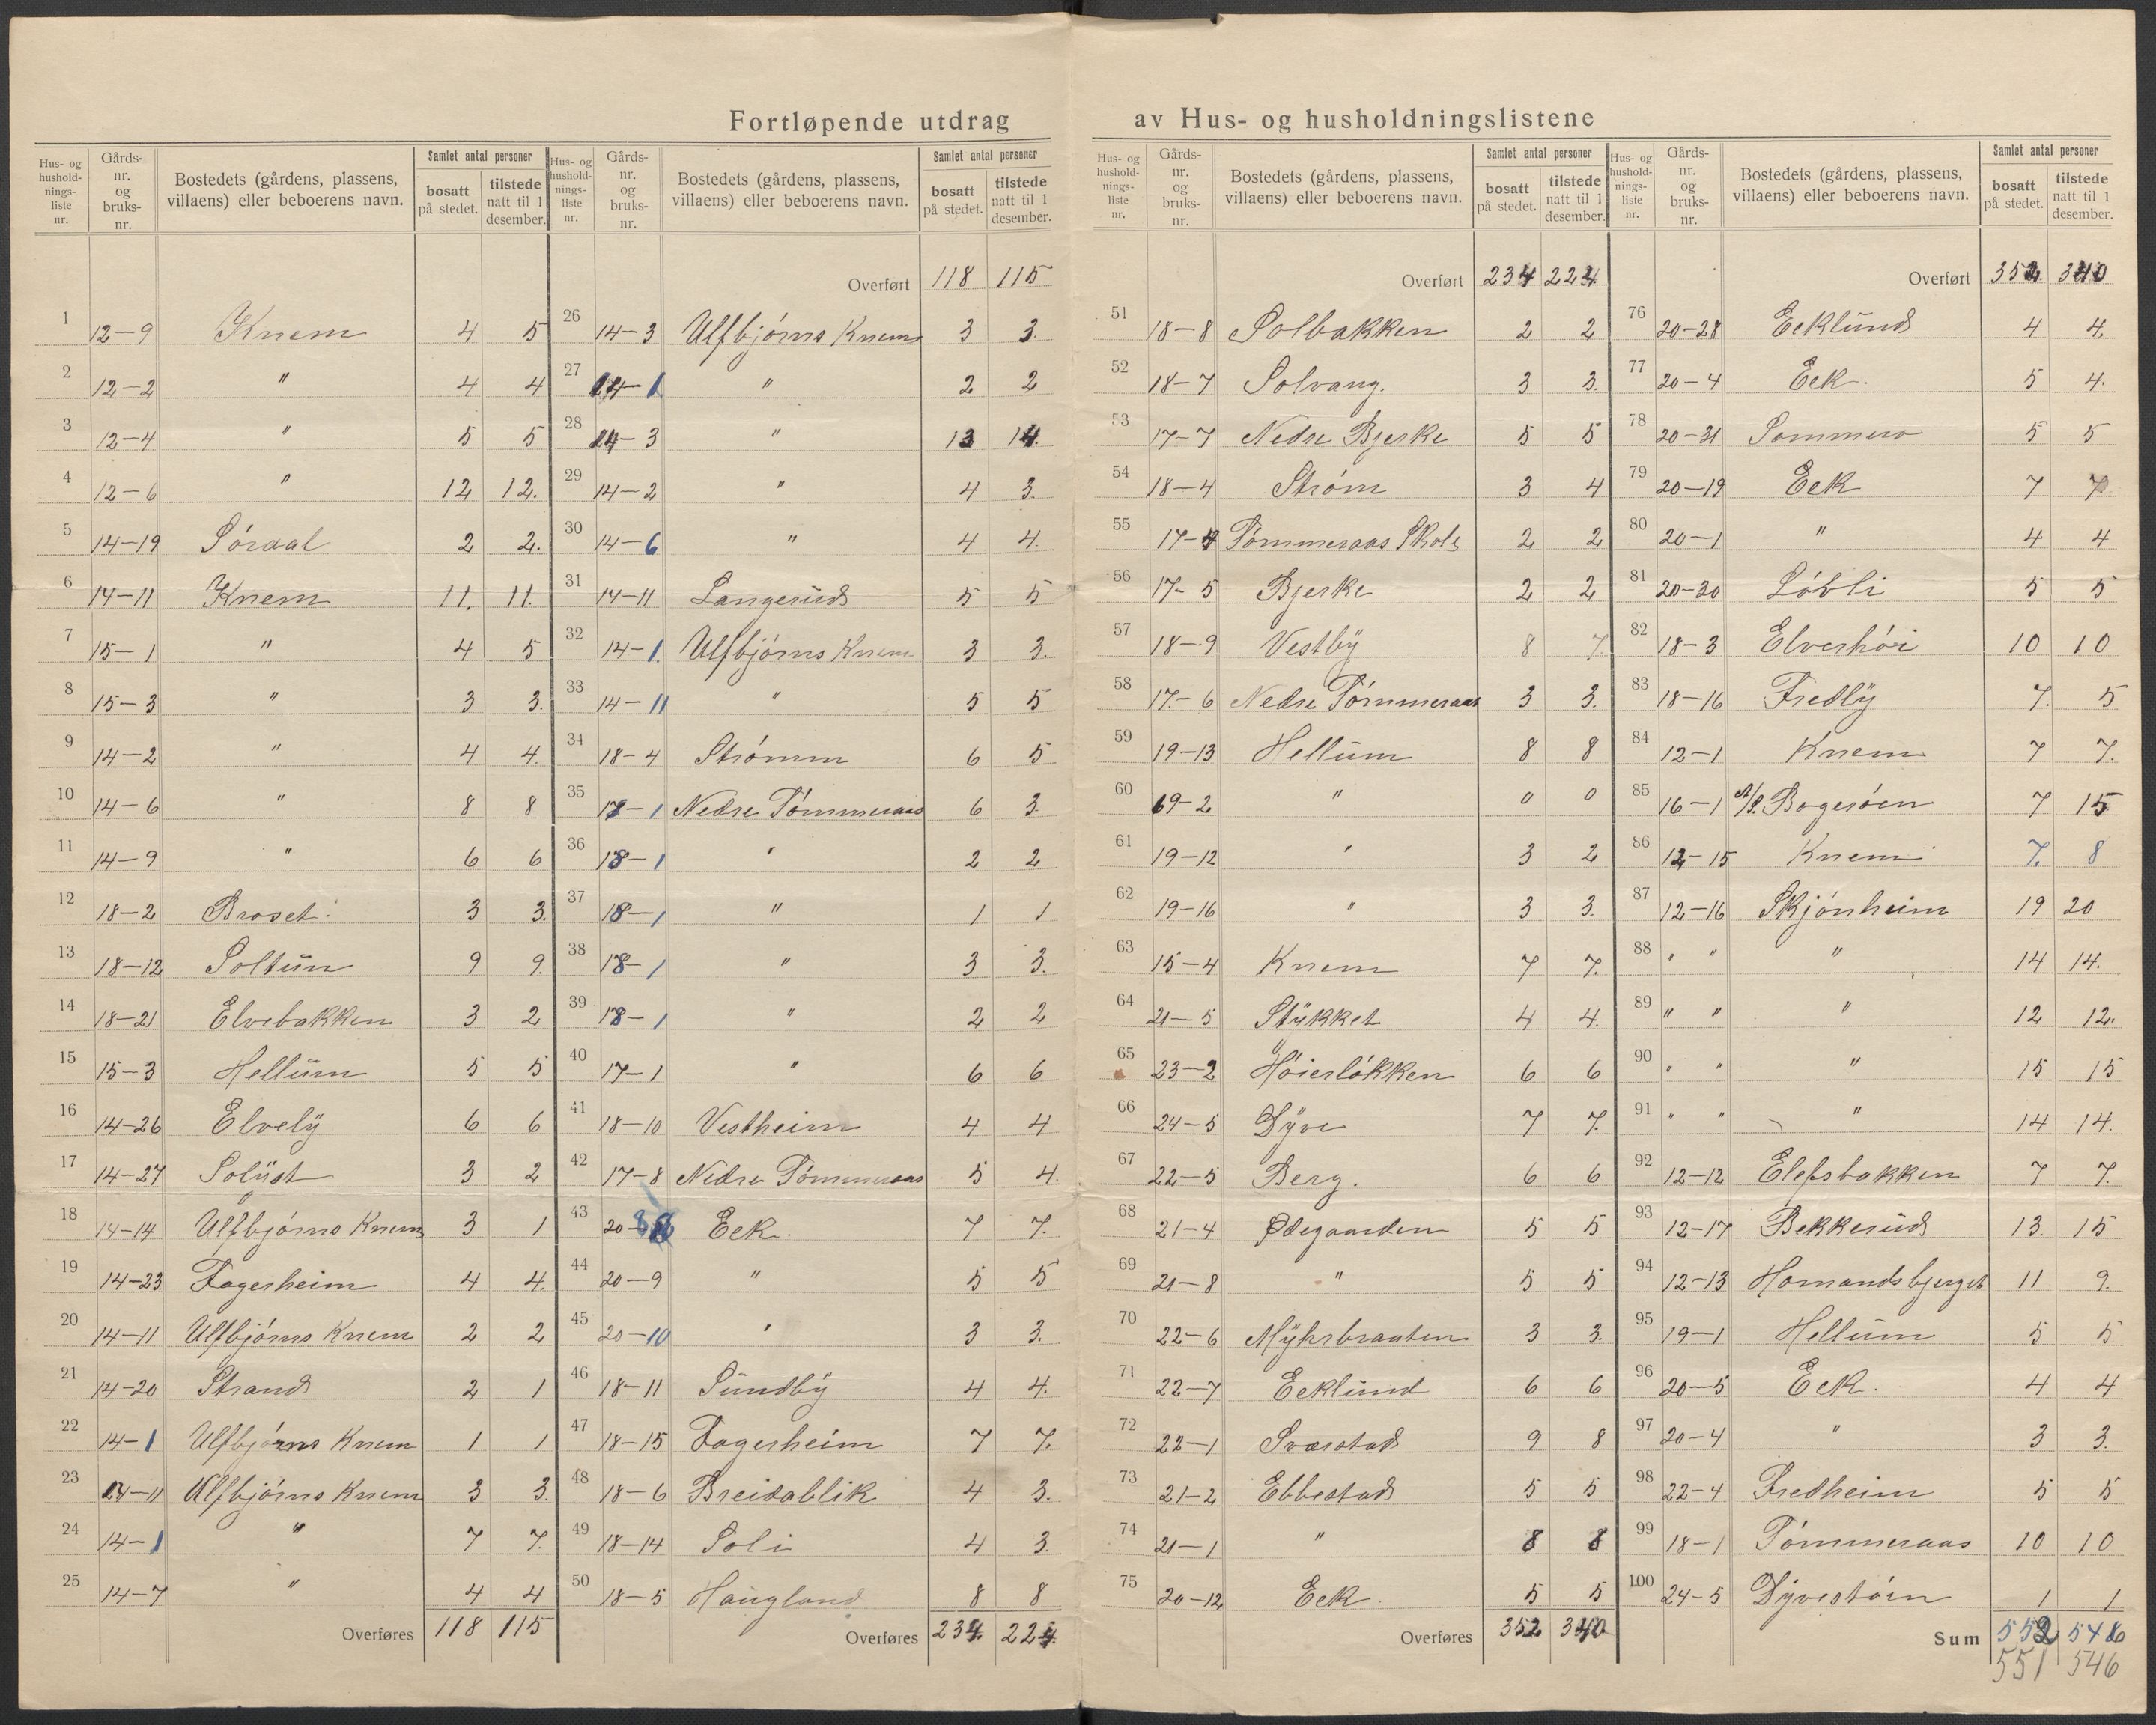 Fortløpende utdrag av Hus- og husholdningslistene
Hus- og husholdningsliste nr. | Gårdsnr. og bruksnr. | Bostedets (gårdens, plassens, villaens) eller beboerens navn. | Samlet antal personer: bosatt på stedet. | tilstede natt til 1 desember.
1 12-9 Knem 4 5
2 12-2 " 4 4
3 12-4 " 5 5
4 12-6 " 12 12.
5 14-19 Söraal 2 2.
6 14-11 Knem 11. 11.
7 15-1 " 4 5
8 15-3 " 3 3.
9 14-2 " 4 4.
10 14-6 " 8 8
11 14-9 " 6 6
12 18-2 Broset. 3 3.
13 18-12 Soltun 9 9.
14 18-21 Elvebakken 3 2
15 15-3 Hellum 5 5
16 14-26 Elvely 6 6
17 14-27 Solyst 3 2
18 14-14 Ulfbjörns Knem 3 1
19 14-23 Fagerheim 4 4.
20 14-11 Ulfbjörns Knem 2 2
21 14-20 Strand 2 1
22 14-1 Ulfbjörns Knem 1 1
23 14-11 Ulfbjörns Knem 3 3.
24 14-1 " 7 7.
25 14-7 " 4 4
Overføres 118 115
Hus- og husholdningsliste nr. | Gårdsnr. og bruksnr. | Bostedets (gårdens, plassens, villaens) eller beboerens navn. | Samlet antal personer: bosatt på stedet. | tilstede natt til 1 desember.
Overført 118 115
26 14-3 Ulfbjörns Knem 3 3.
27 14-1 " 2 2
28 14-3 " 13 14.
29 14-2 " 4 3.
30 14-6 " 4 4.
31 14-11 Langerud 5 5
32 14-1. Ulfbjörns Knem 3 3.
33 14-11 " 5 5
34 18-4 Strömm 6 5
35 18-1 Nedre Tömmeraas 6 3.
36 18-1 " 2 2
37 18-1 " 1 1
38 18-1 " 3 3.
39 18-1 " 2 2
40 17-1 " 6 6
41 18-10 Vestheim 4 4
42 17-8 Nedre Tömmeraas 5 4.
43 20- Eek. 7 7.
44 20-9 " 5 5
45 20-10 " 3 3.
46 18-11 Sundby 4 4.
47 18-15 Fagerheim 7 7.
48 18-6 Breidablik 4 3.
49 18-14 Soli 4 3.
50 18-5 Haugland 8 8
Overføres 234. 224.
Hus- og husholdningsliste nr. | Gårdsnr. og bruksnr. | Bostedets (gårdens, plassens, villaens) eller beboerens navn. | Samlet antal personer: bosatt på stedet. | tilstede natt til 1 desember.
Overført 234 224.
51 18-8 Solbakken 2 2
52 18-7 Solvang. 3 3.
53 17-7 Nedre Bjerke 5 5
54 18-4 Ström 3 4
55 17-4 Tömmeraas Skole 2 2
56 17-5 Bjerke 2 2
57 18-9 Vestby 8 7.
58 17-6 Nedre Tömmeraas 3 3.
59 19-13 Hellum 8 8
60 19-2 " 0 0
61 19-12 " 3 2
62 19-16 " 3 3.
63 15-4 Knem 7 7.
64 21-5 Stykket 4 4.
65 23-2 Höierlökken 6 6
66 24-5 Dyve 7 7.
67 22-5 Berg. 6 6
68 21-4 Ødegaarden 5 5
69 21-8 " 5 5
70 22-6 Myhrbraaten 3 3.
71 22-7 Eeklund 6 6
72 22-1 Sværstad 9 8
73 21-2 Ebbestad 5 5
74 21-1 " 8 8
75 20-12 Eek. 5 5
Overføres 352 340
Hus- og husholdningsliste nr. | Gårdsnr. og bruksnr. | Bostedets (gårdens, plassens, villaens) eller beboerens navn. | Samlet antal personer: bosatt på stedet. | tilstede natt til 1 desember.
Overført 352. 340
76 20-28 Eeklund 4 4.
77 20-4 Eek. 5 4.
78 20-31 Sommero 5 5
79 20-19 Eek 7 7
80 20-1 " 4 4
81 20-30 Lövli 5 5
82 18-3 Elverhöi 10 10
83 18-16 Fredly 7. 5
84 12-1 Knem 7 7.
85 16-1 Bogeröen 7 15
86 12-15 Knem 7. 8
87 12-16 Skjönheim 19 20
88 " " " 14 14.
89 " " " 12 12.
90 " " " 15 15
91 " " " 14 14.
92 12-12 Elefsbakken 7 7.
93 12-17 Bekkerud 13. 15
94 12-13 Homandsbjerget 11 9.
95 19-1 Hellum 5 5
96 20-5 Eek. 4 4
97 20-4 " 3 3.
98 22-4 Fredheim 5 5
99 18-1 Tömmeraas 10 10
100 24-5 Dyvestöen 1 1
Sum 552 546
551 546